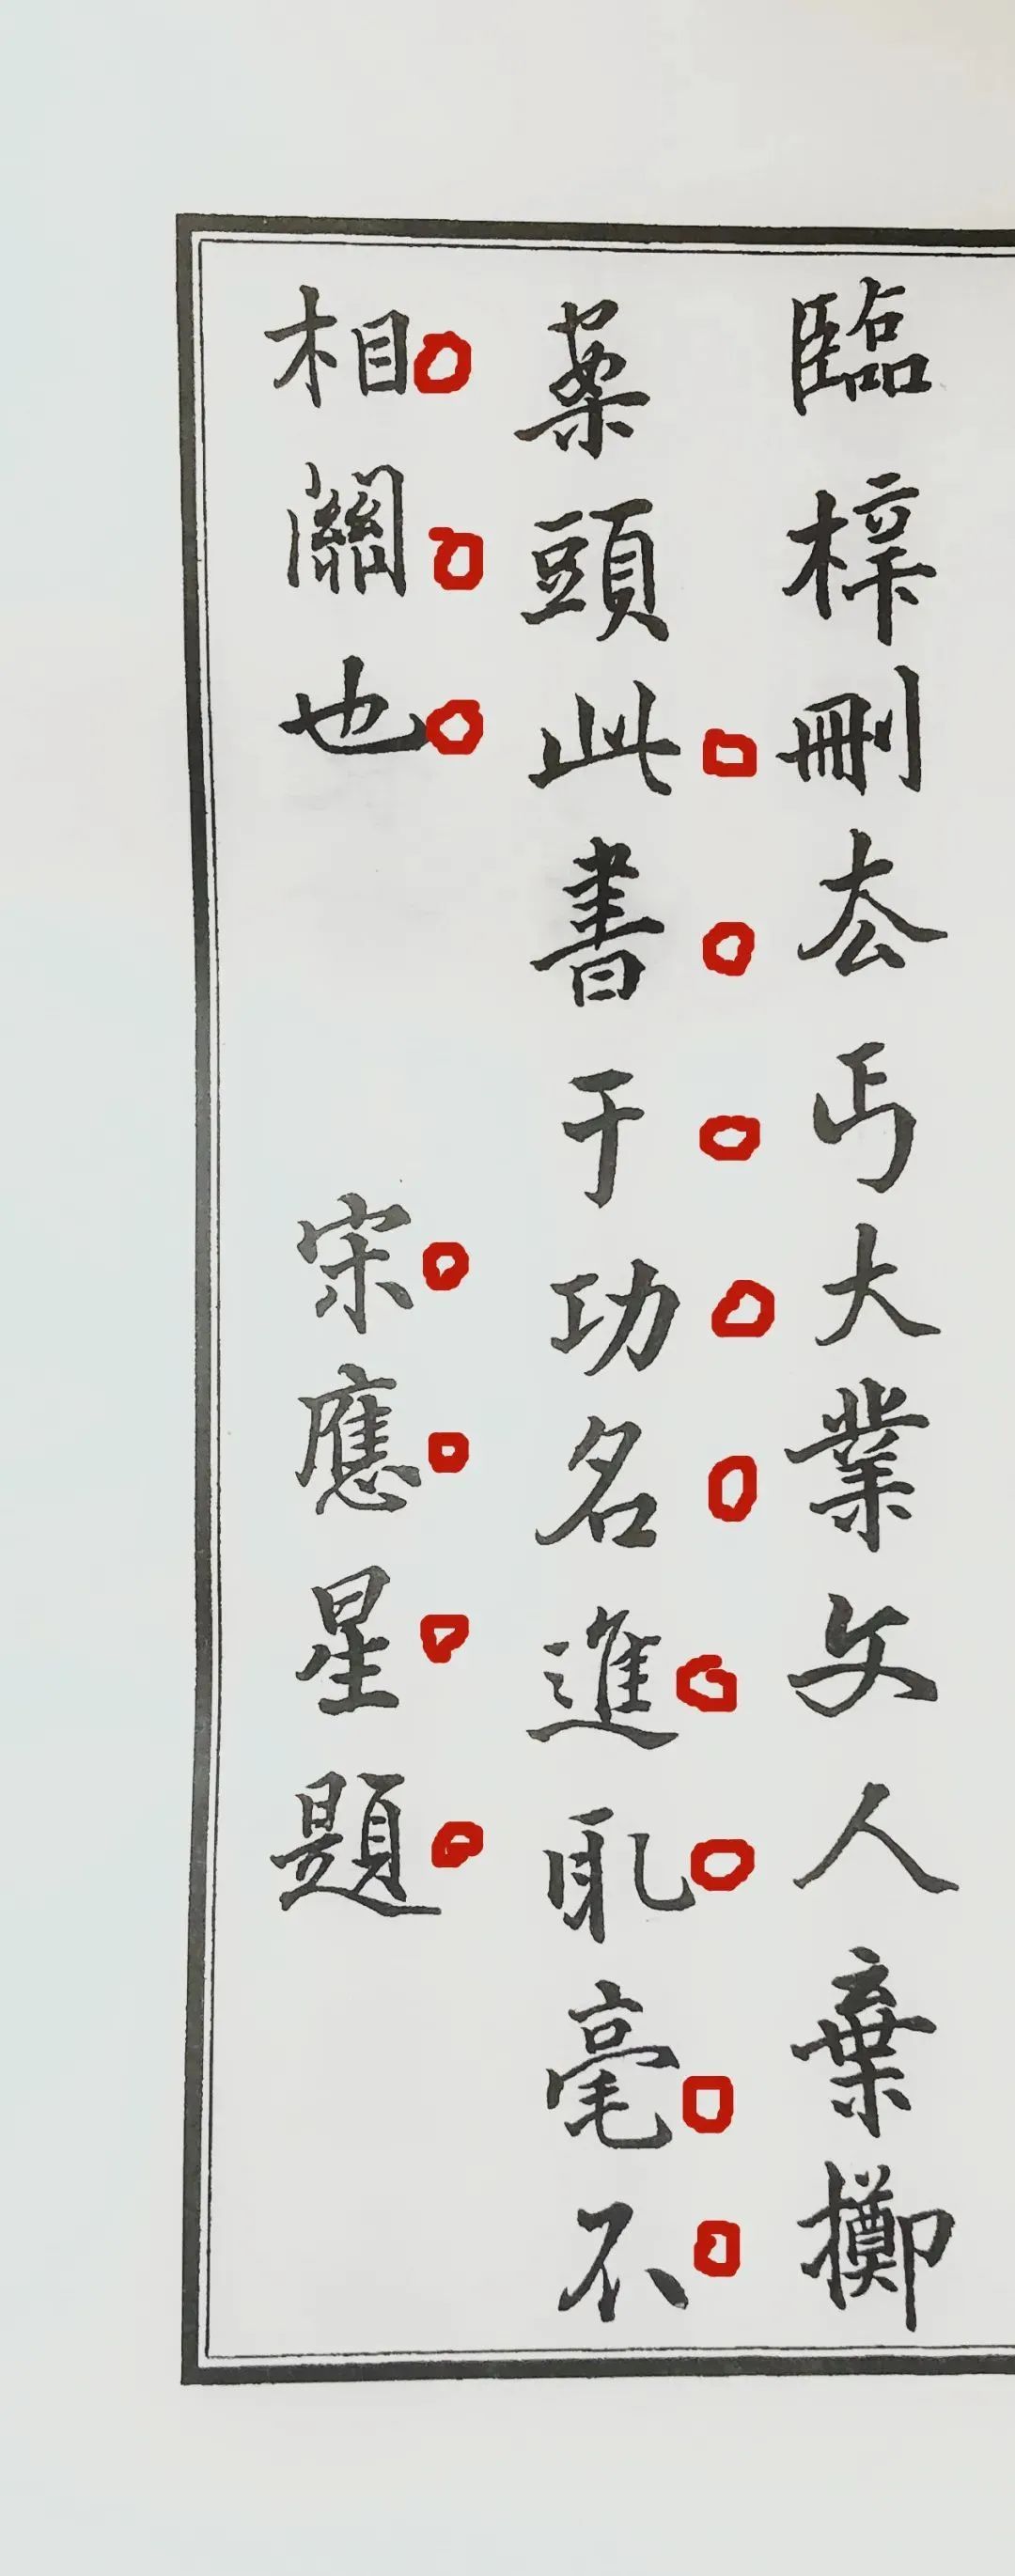 臨梓刪去丐大業文人棄擲
案頭此書于功名進取毫不
相關也 宋應星題